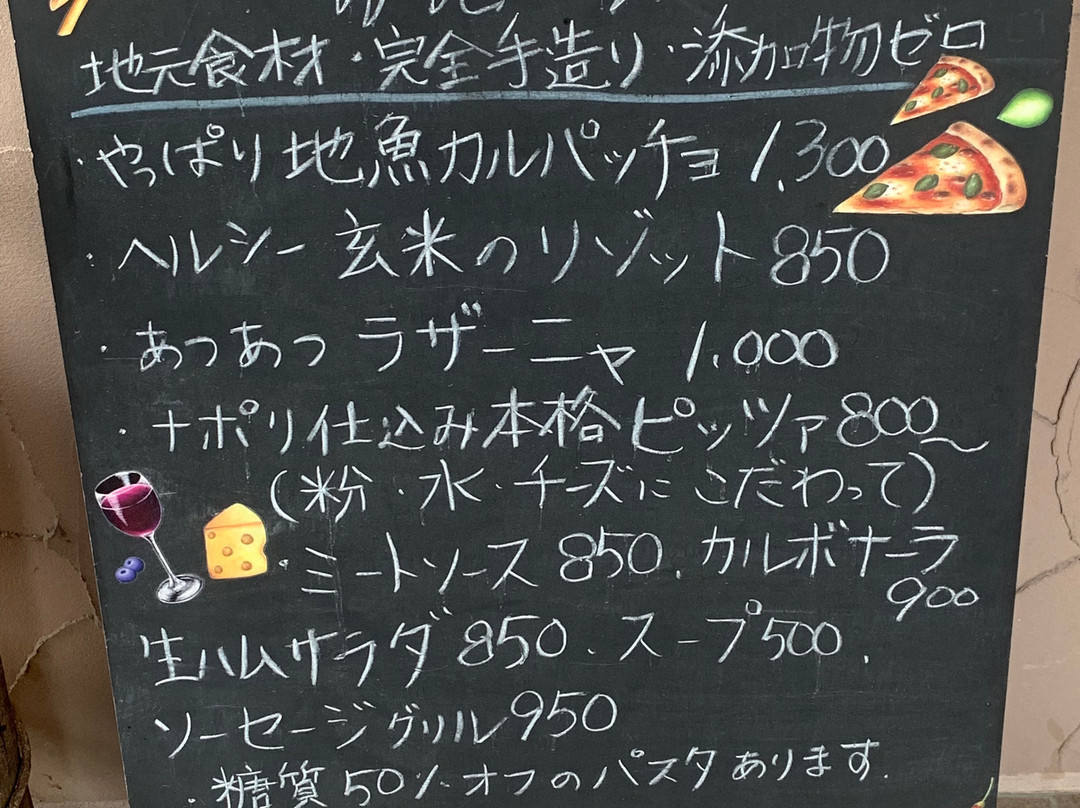 地元食材・完全手造り・添加物ゼロ
・やっぱり地魚カルパッチョ 1,300
・ヘルシー玄米のリゾット 850
・あつあつ ラザーニャ 1,000
・ナポリ仕込み本格ピッツァ800〜
(粉・水・チーズにこだわって)
・ミートソース 850、カルボナーラ
900
生ハムサラダ 850、スープ500、
ソーセージグリル950
・糖質50%オフのパスタあります.